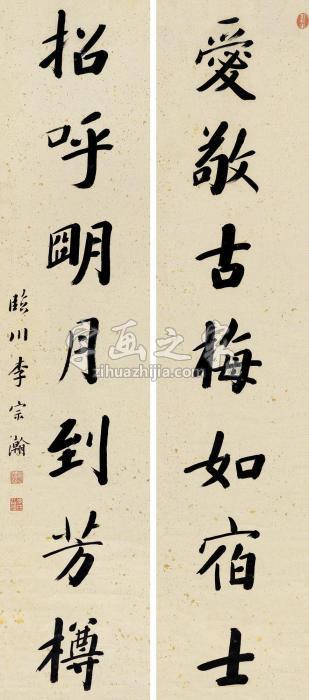 愛敬古梅如宿士
招呼朙月到芳樽
臨川李宗瀚
字画之家
zihuazhijia.com